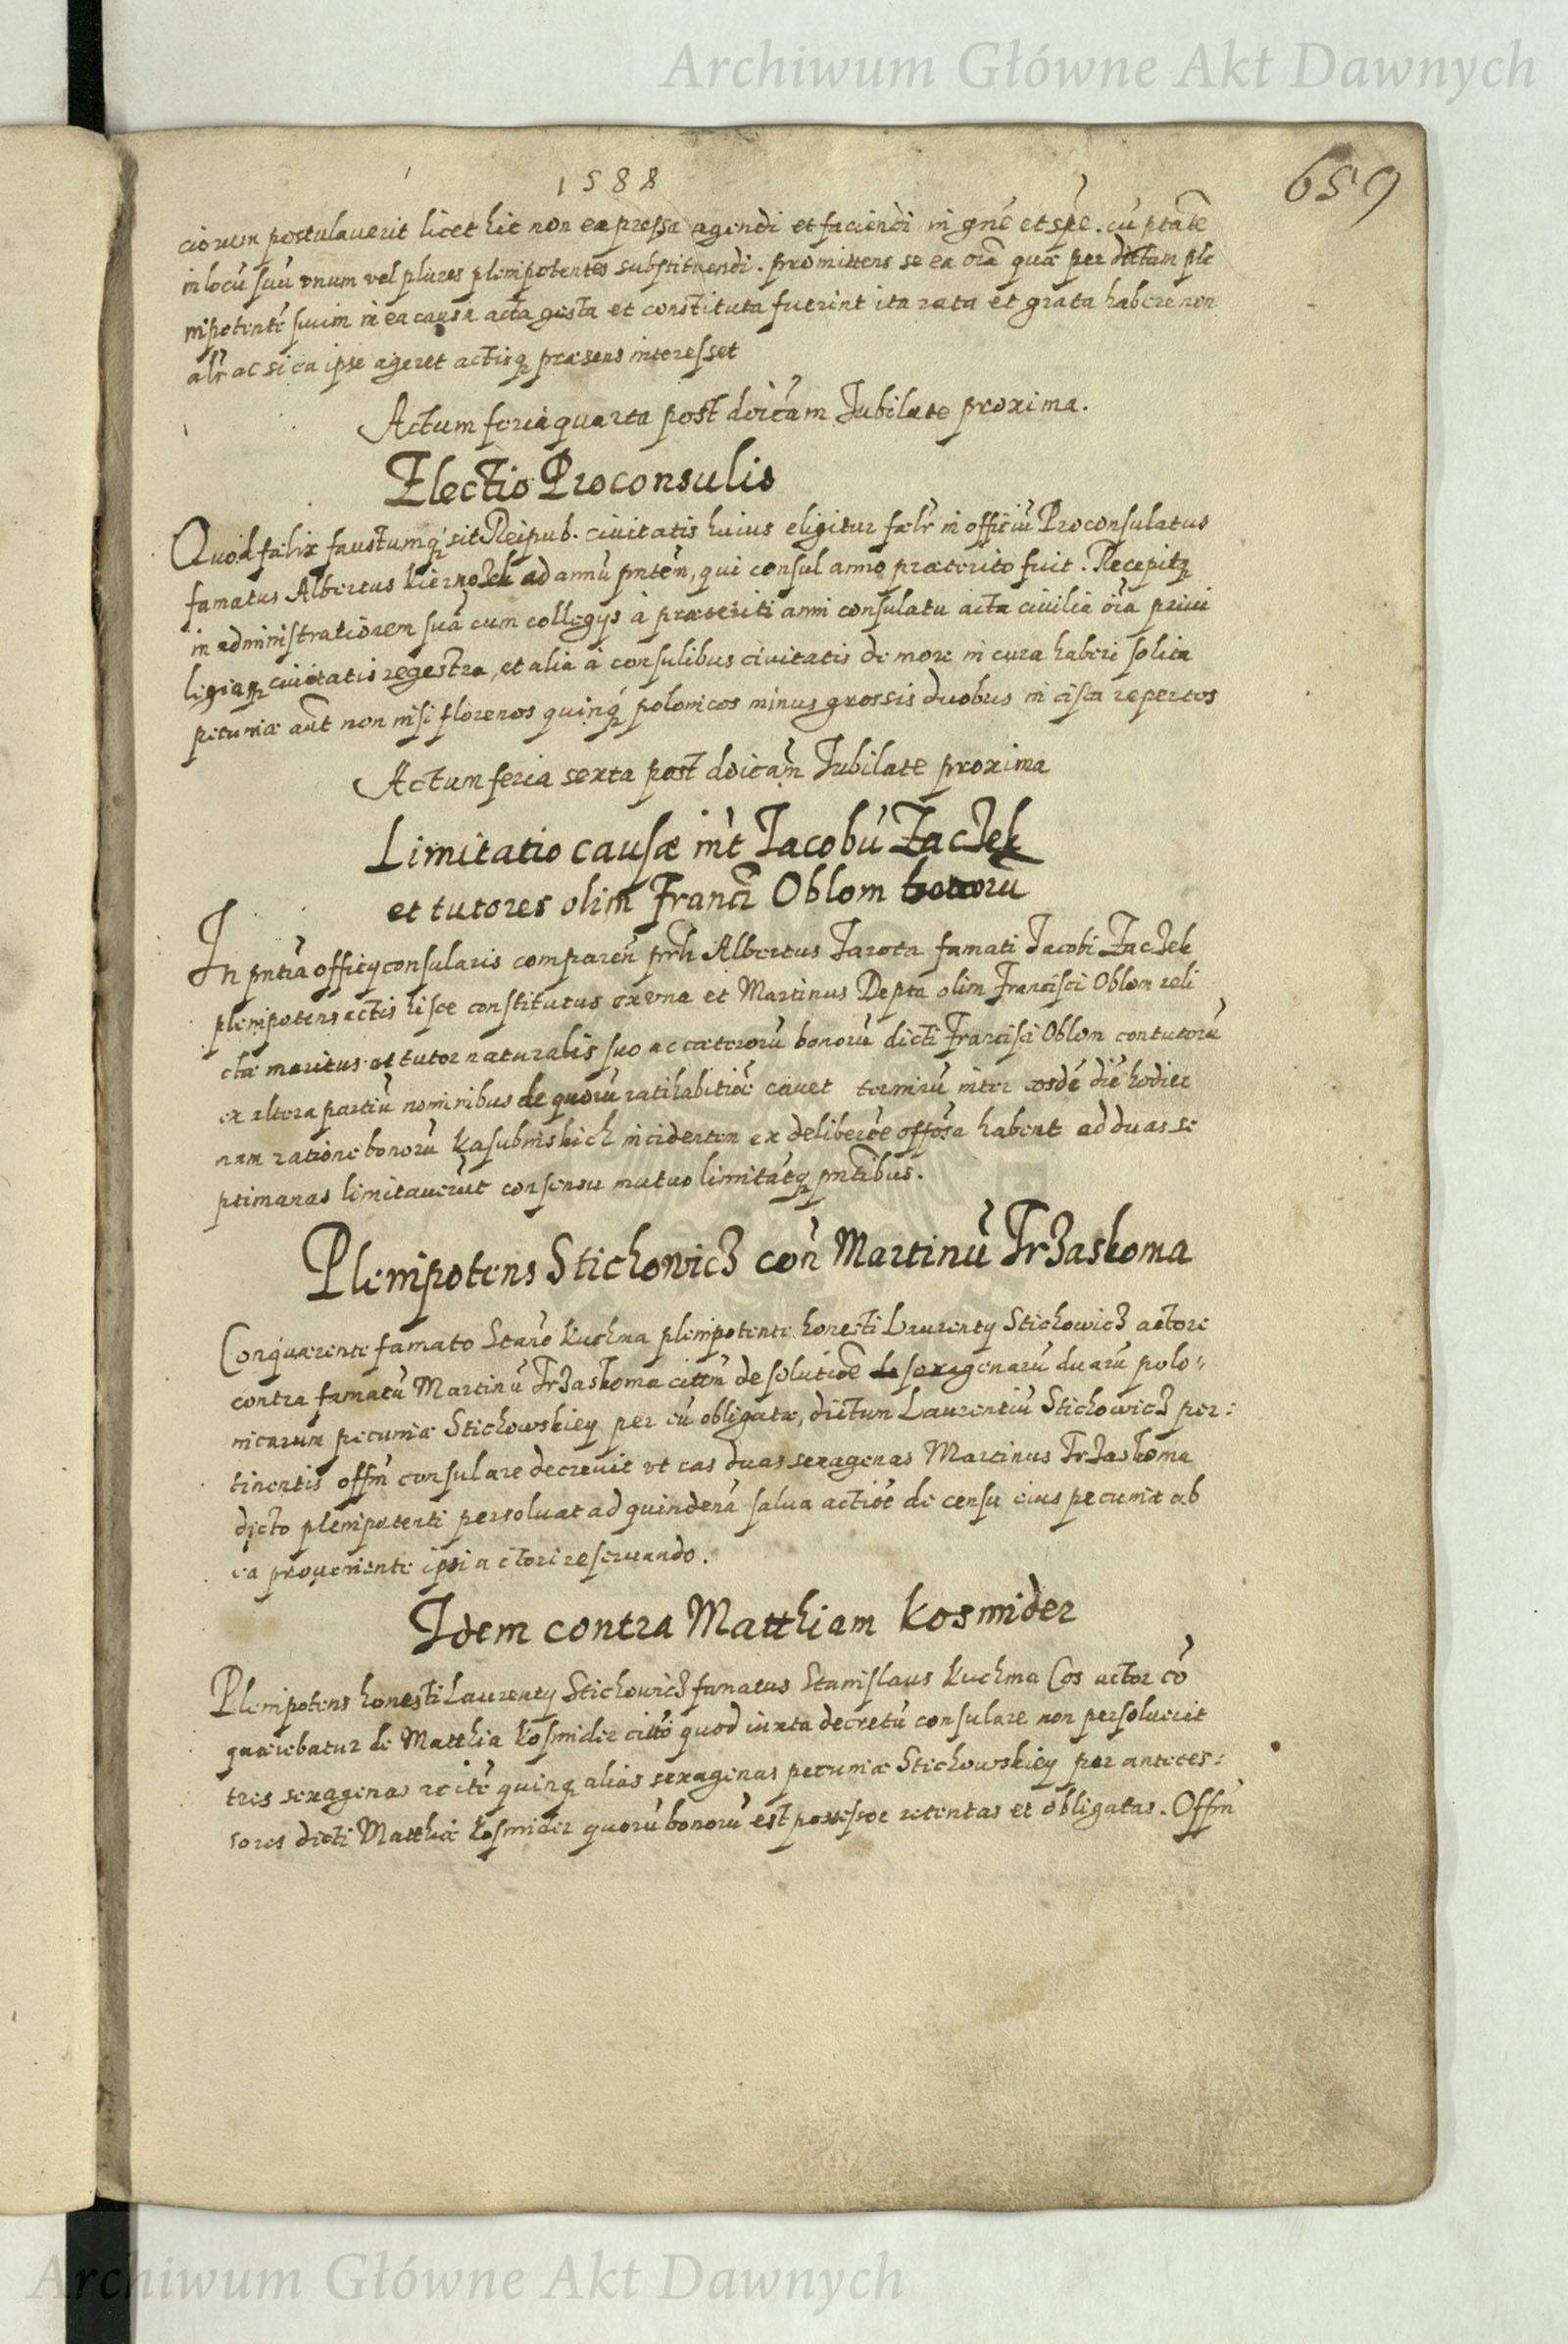 Archiwum Główne Akt Dawnych
1588
659
ciorum postulaverit licet hic non expressa agendi et faciendi in gñe et spẽ. cũ ptãte
in locũ suũ unum vel plures plenipotentes substituendi. promittens se ea oĩa quæ per dictam ple
nipotentẽ suum in ea causa acta gesta et constituta fuerint ita rata et grata habere non
alr ac si ea ipse ageret actisq præsens interesset
Actum feria quarta post doĩcam Jubilate proxima.
Electio Proconsulis
Quod fælix faustumq sit Reipub. civitatis huius eligitur fælr in officiũ Proconsulatus
famatus Albertus Kiernozek ad annũ pntẽm, qui consul anno præterito fuit. Recepitq
in administrationem suã cum collegys à præteriti anni consulatu acta civilia oĩa privi
legiaq civitatis regestra, et alia à consulibus civitatis de more in cura haberi solita
pecuniæ aũt non nisi florenos quinq polonicos minus grossis duobus in cista repertos
Actum feria sexta post doĩcam Jubilate proxima
Limitatio causæ inť Jacobũ Zaczek
et tutores olim Franc̃i Oblom bonorũ
In pntĩa officy consularis comparen̄ prh Albertus Jarota famati Jacobi Zaczek
plenipotens actis hisce constitutus ex una et Martinus Depta olim Francisci Oblom reli
ctæ maritus et tutor naturalis suo ac cæterorũ bonorũ dicti Francisci Oblom contutorũ
ex altera partiũ nominibus de quorũ ratihabitiõe cavet terminũ inter eosdẽ diẽ hodier
nam ratione bonorũ Kasubinskich incidentem ex deliberõe offosa habent ad duas se
ptimanas limitaverũt consensu mutuo limitãtq pntibus.
Plenipotens Stichowicz con̄ Martinũ Trzaskoma
Conquærente famato Stan̄o Kuchma plenipotente honesti Laurenty Stichowicz actore
contra famatũ Martinũ Trzaskoma cittm̃ de solutiõe de sexagenarũ duarũ polo,,
nicarum pecuniæ Stichowskiey per eũ obligatæ, dictum Laurentiũ Stichowicz per:
tinentis offm̃ consulare decrevit ut eas duas sexagenas Martinus Trzaskoma
dicto plenipotenti persolvat ad quindenã salva actiõe de censu eius pecuniæ ab
ea proveniente ipsi actori reservando.
Idem contra Matthiam Kosmider
Plenipotens honesti Laurenty Stichowicz famatus Stanislaus Kuchma Cos actor cõ
quærebatur de Matthia Kosmider cittõ quod iuxta decretũ consulare non persolverit
tres sexagenas ac itẽ quinq alias sexagenas pecuniæ Stichowskiey per anteces:
sores dicti Matthiæ Kosmider quorũ bonorũ est possessor retentas et obligatas. Offm̃
Archiwum Główne Akt Dawnych